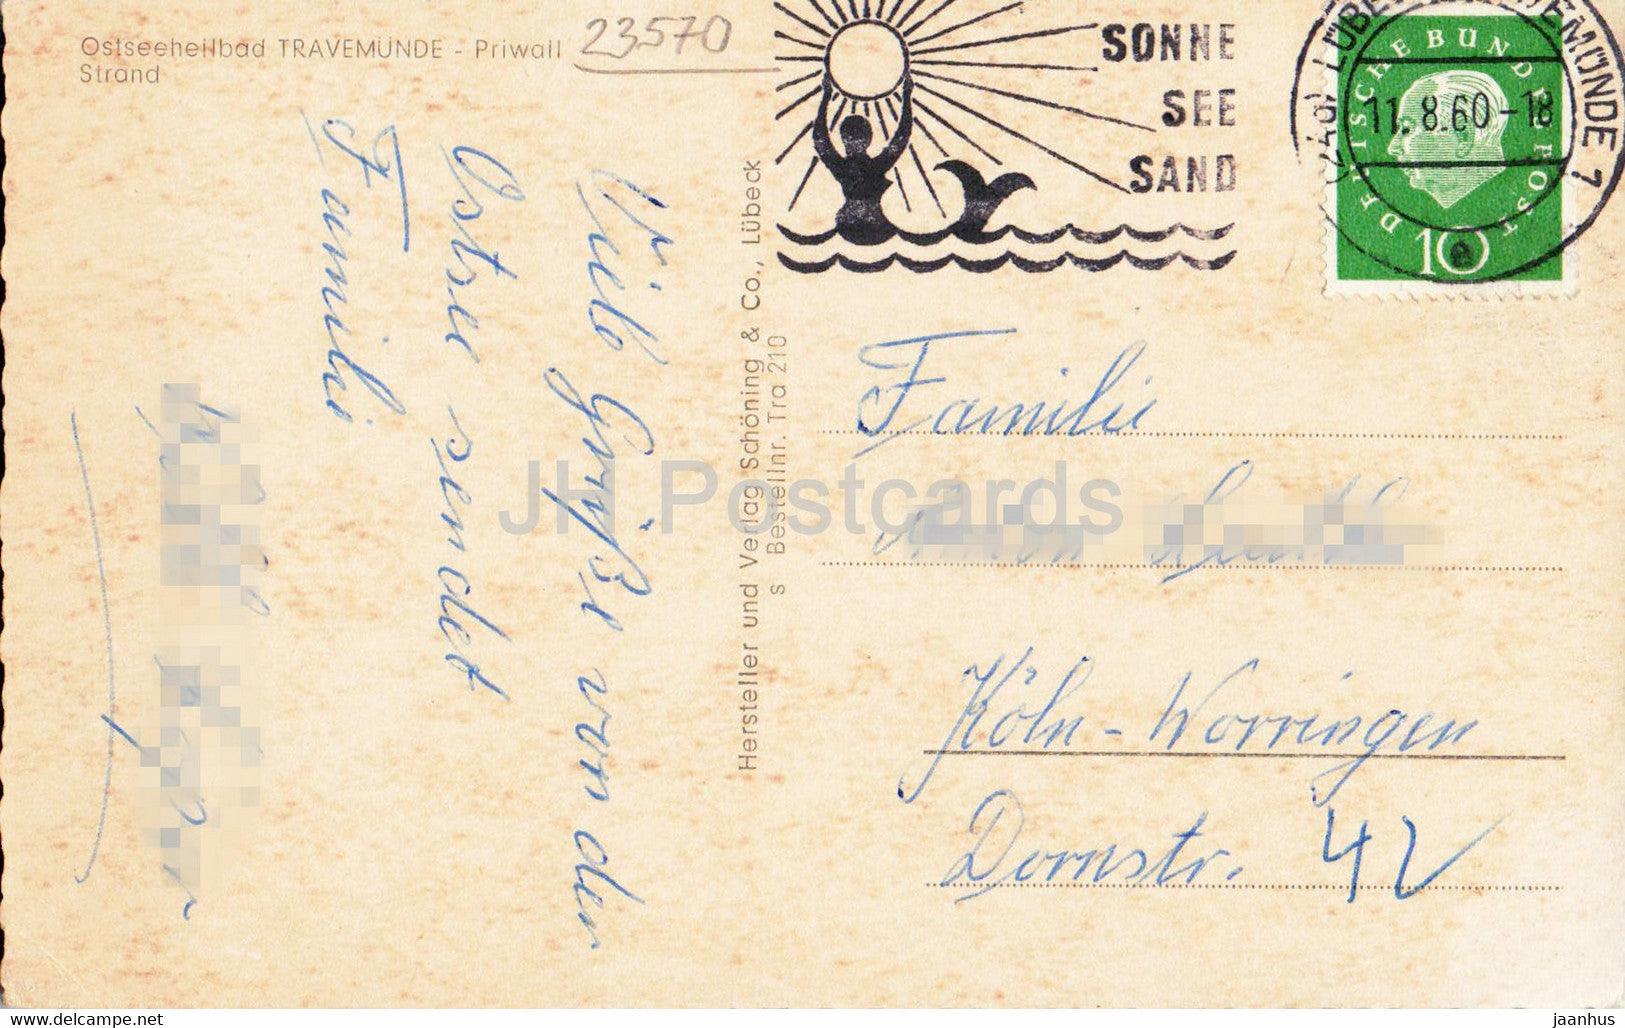 Ostseeheilbad TRAVEMÜNDE - Priwall
Strand
23570
SONNE
SEE
SAND
(24a) LÜBECK-TRAVEMÜNDE 1
11.8.60-18
a
DEUTSCHE BUNDESPOST
10
Viele Grüße von der
Ostsee sendet
Familie
Hersteller und Verlag Schöning & Co., Lübeck
s Bestellnr. Tra 210
Familie
Köln-Worringen
Dornstr. 42
JH Postcards
www.delcampe.net
jaanhus